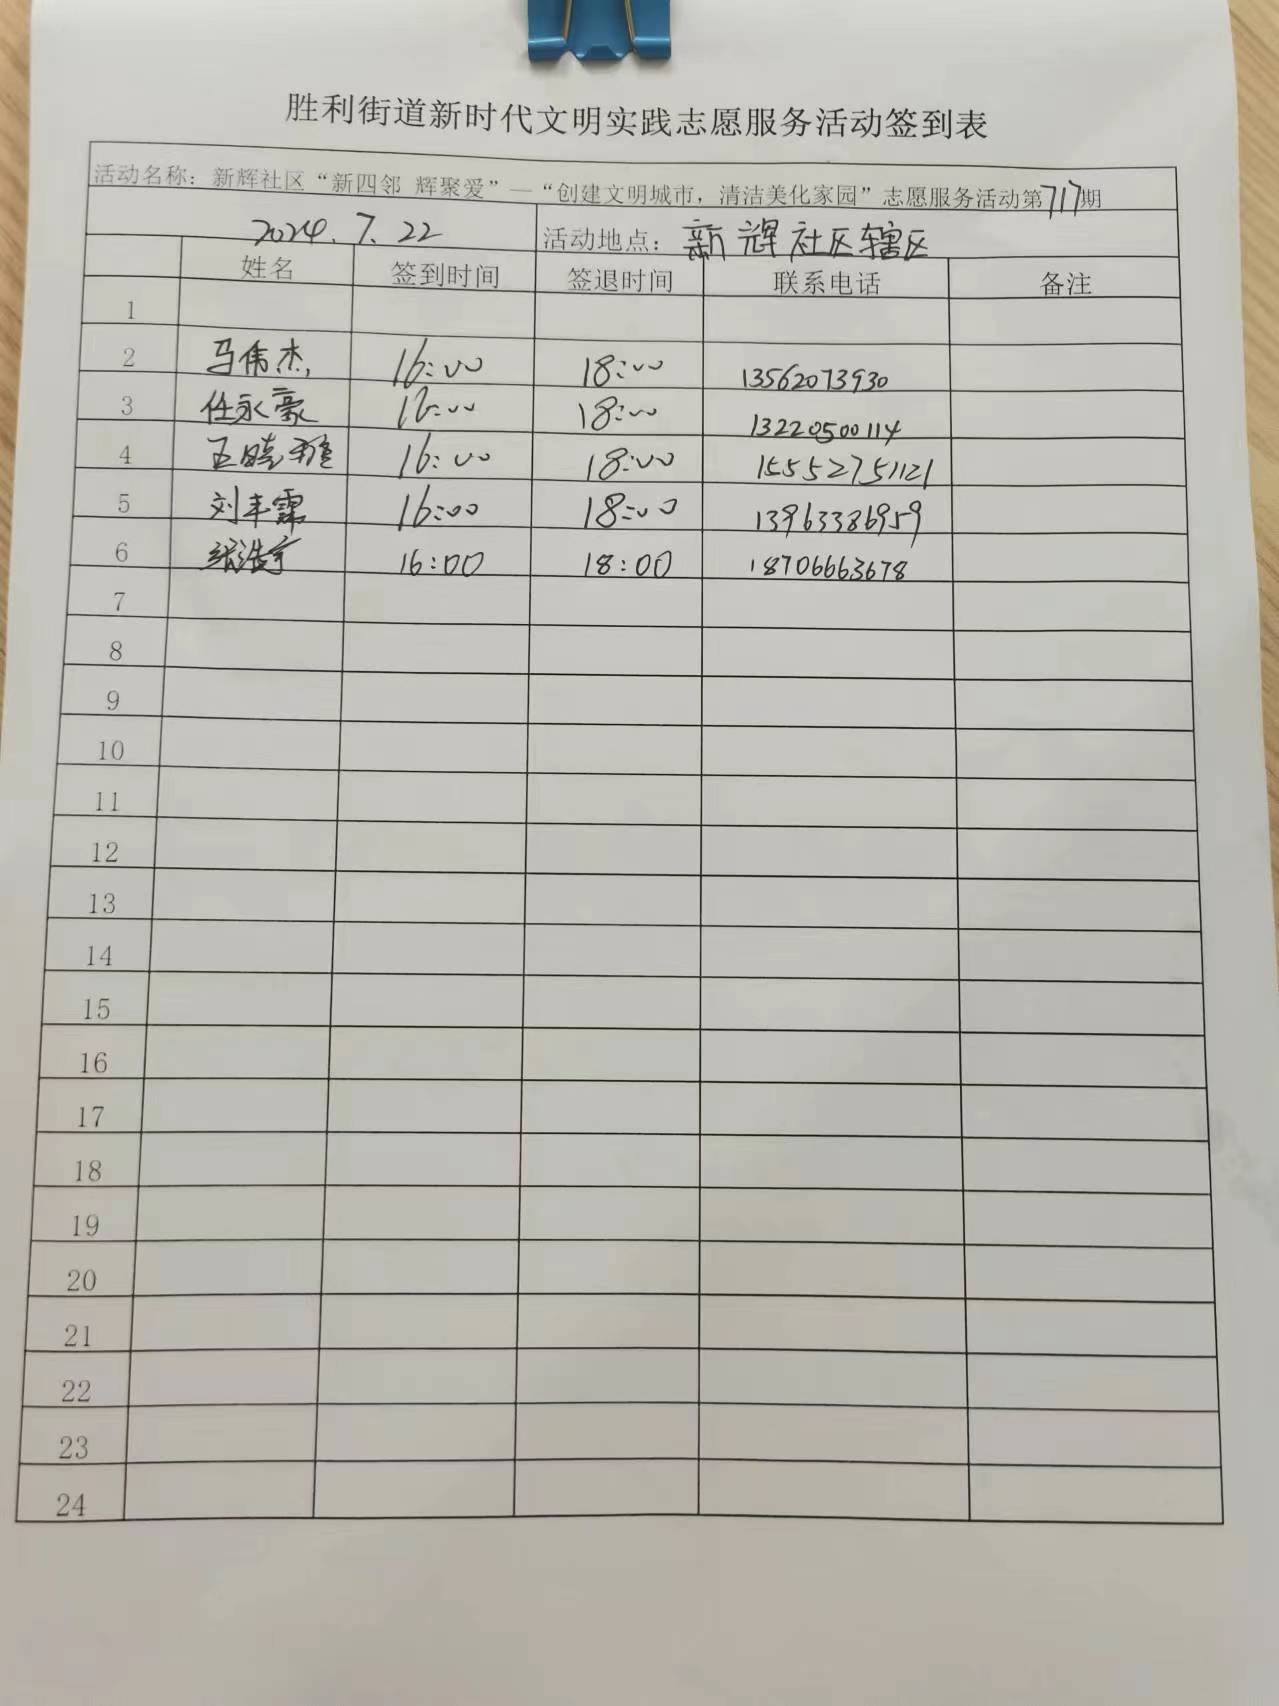 胜利街道新时代文明实践志愿服务活动签到表
活动名称：新辉社区“新四邻 辉聚爱”—“创建文明城市，清洁美化家园”志愿服务活动第717期
2024.7.22 活动地点：新辉社区辖区
姓名 签到时间 签退时间 联系电话 备注
1
2 马伟杰 16:00 18:00 13562073930
3 任永豪 16:00 18:00 13220500114
4 王晓雅 16:00 18:00 15552751121
5 刘丰霈 16:00 18:00 13963386959
6 张浩宇 16:00 18:00 18706663678
7
8
9
10
11
12
13
14
15
16
17
18
19
20
21
22
23
24